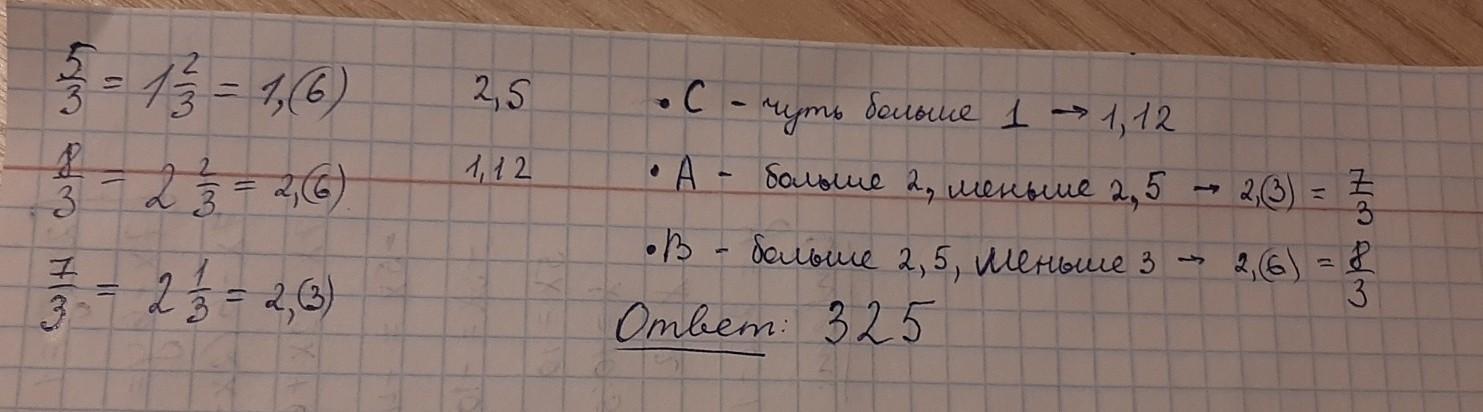 5/3 = 1 2/3 = 1,(6)
8/3 = 2 2/3 = 2,(6)
7/3 = 2 1/3 = 2,(3)
2,5
1,12
• C - чуть больше 1 → 1,12
• A - больше 2, меньше 2,5 → 2,(3) = 7/3
• B - больше 2,5, меньше 3 → 2,(6) = 8/3
Ответ: 325